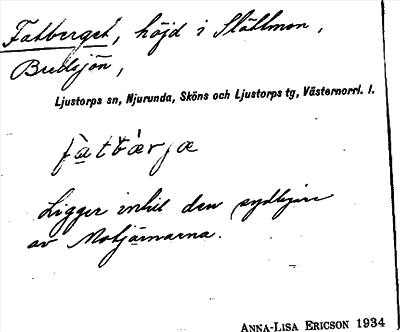 Fatberget, höjd i Slättmon,
Bredsjön,
Ljustorps sn, Njurunda, Sköns och Ljustorps tg, Västernorrl. l.
fatbærjæ
Ligger intill den sydligare
av Motjärnarna.
ANNA-LISA ERICSON 1934